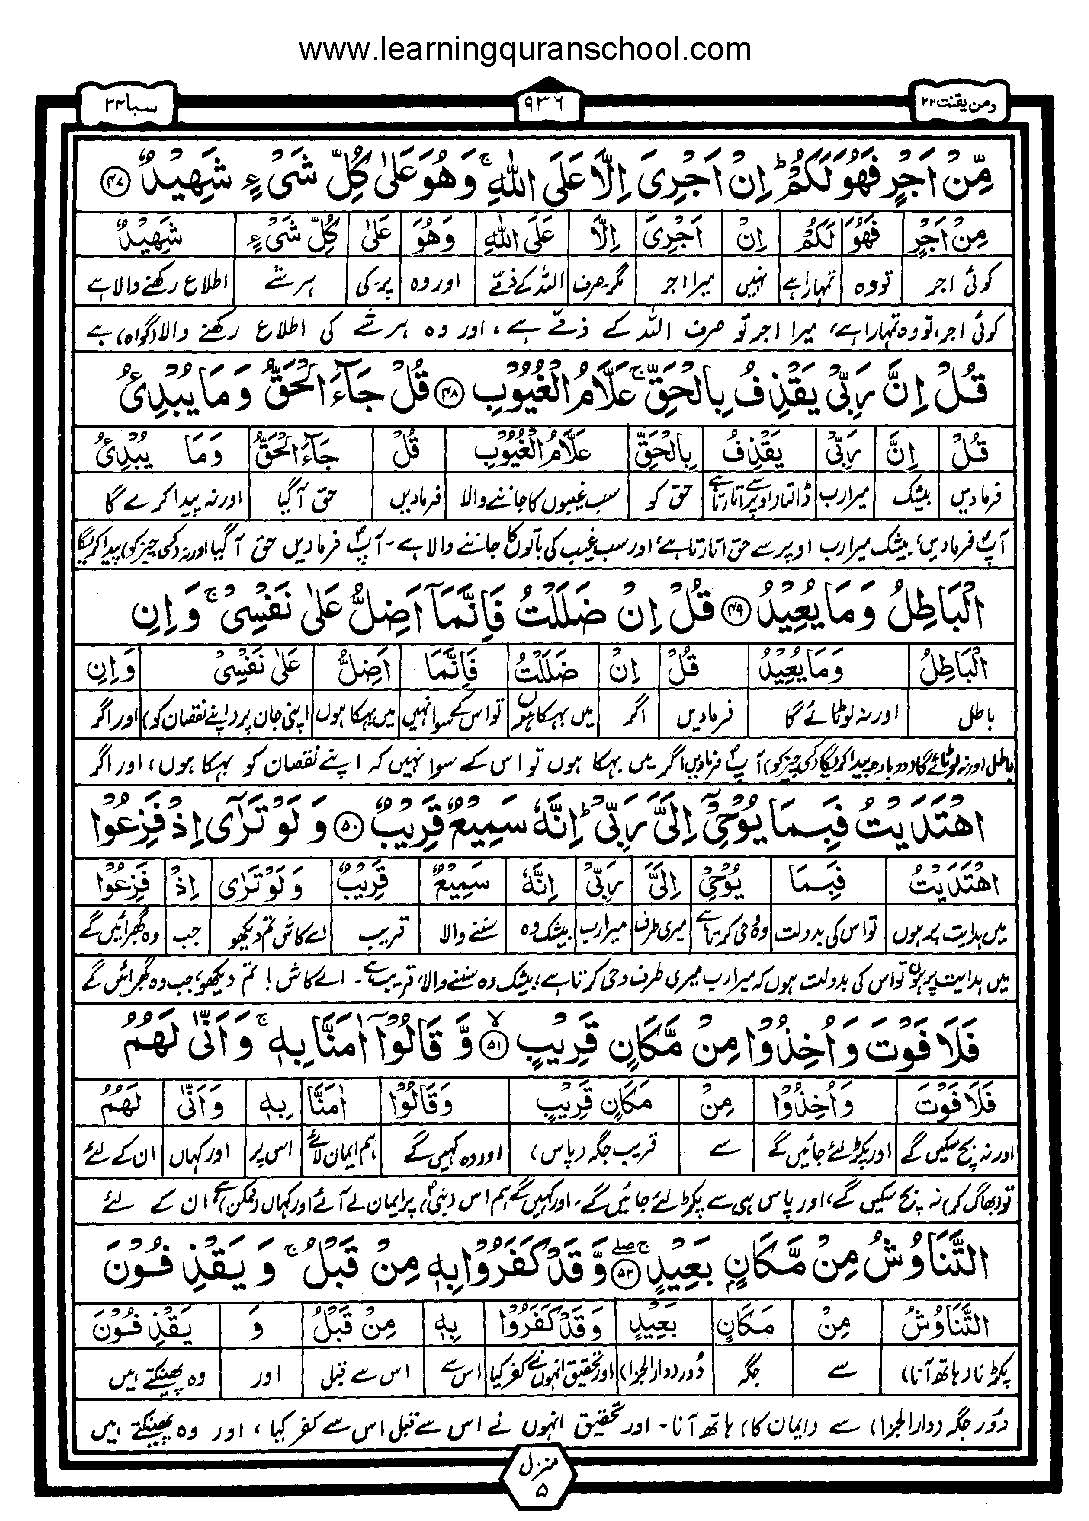 www.learningquranschool.com
ومن یقنت ۲۲
۹۳۶
سبا ۳۴
مِّنْ اَجْرٍ فَهُوَ لَكُمْ ؕ اِنْ اَجْرِیَ اِلَّا عَلَی اللّٰهِ ۚ وَهُوَ عَلٰی كُلِّ شَیْءٍ شَهِیْدٌ ﴿۴۷﴾
مِنْ اَجْرٍ فَهُوَ لَكُمْ اِنْ اَجْرِیَ اِلَّا عَلَی اللّٰهِ وَهُوَ عَلٰی كُلِّ شَیْءٍ شَهِیْدٌ
کوئی اجر تو وہ تمہارا ہے نہیں میرا اجر مگر صرف اللہ کے ذمّے اور وہ پر۔ کی ہر شے اطلاع رکھنے والا ہے
کوئی اجر، تو وہ تمہارا ہے، میرا اجر تو صرف اللہ کے ذمّے ہے، اور وہ ہر شے کی اطلاع رکھنے والا (گواہ) ہے
قُلْ اِنَّ رَبِّیْ یَقْذِفُ بِالْحَقِّ ۚ عَلَّامُ الْغُیُوْبِ ﴿۴۸﴾ قُلْ جَآءَ الْحَقُّ وَمَا یُبْدِئُ
قُلْ اِنَّ رَبِّیْ یَقْذِفُ بِالْحَقِّ عَلَّامُ الْغُیُوْبِ قُلْ جَآءَ الْحَقُّ وَمَا یُبْدِئُ
فرمادیں بیشک میرا رب ڈالتا (اوپر سے اتارتا ہے) حق کو سب غیبوں کا جاننے والا فرمادیں حق آگیا اور نہ پیدا کرے گا
آپؐ فرمادیں، بیشک میرا رب اوپر سے حق اتارتا ہے، اور سب غیب کی باتوں کا جاننے والا ہے۔ آپؐ فرمادیں حق آگیا اور نہ (کسی چیز کو) پیدا کریگا
الْبَاطِلُ وَمَا یُعِیْدُ ﴿۴۹﴾ قُلْ اِنْ ضَلَلْتُ فَاِنَّمَاۤ اَضِلُّ عَلٰی نَفْسِیْ ۚ وَاِنِ
الْبَاطِلُ وَمَا یُعِیْدُ قُلْ اِنْ ضَلَلْتُ فَاِنَّمَا اَضِلُّ عَلٰی نَفْسِیْ وَاِنِ
باطل اور نہ لوٹائے گا فرمادیں اگر میں بہکا ہوں تو اس کے سوا نہیں میں بہکا ہوں اپنی جان پر (اپنے نقصان کو) اور اگر
باطل اور نہ لوٹائے گا (دوبارہ پیدا کریگا کسی چیز کو) آپؐ فرمادیں اگر میں بہکا ہوں تو اس کے سوا نہیں کہ اپنے نقصان کو بہکا ہوں، اور اگر
اهْتَدَیْتُ فَبِمَا یُوْحِیْۤ اِلَیَّ رَبِّیْ ؕ اِنَّهٗ سَمِیْعٌ قَرِیْبٌ ﴿۵۰﴾ وَلَوْ تَرٰۤی اِذْ فَزِعُوْا
اهْتَدَیْتُ فَبِمَا یُوْحِیْ اِلَیَّ رَبِّیْ اِنَّهٗ سَمِیْعٌ قَرِیْبٌ وَلَوْ تَرٰی اِذْ فَزِعُوْا
میں ہدایت پر ہوں تو اس کی بدولت وہ وحی کرتا ہے میری طرف میرا رب بیشک وہ سننے والا قریب اے کاش تم دیکھو جب وہ گھبرائیں گے
میں ہدایت پر ہوں تو اس کی بدولت ہوں کہ میرا رب میری طرف وحی کرتا ہے، بیشک وہ سننے والا قریب ہے۔ اے کاش! تم دیکھو، جب وہ گھبرائیں گے
فَلَا فَوْتَ وَاُخِذُوْا مِنْ مَّكَانٍ قَرِیْبٍ ﴿۵۱﴾ وَّقَالُوْۤا اٰمَنَّا بِهٖ ۚ وَاَنّٰی لَهُمُ
فَلَا فَوْتَ وَاُخِذُوْا مِنْ مَكَانٍ قَرِیْبٍ وَقَالُوْا اٰمَنَّا بِهٖ وَاَنّٰی لَهُمُ
اور نہ بچ سکیں گے اور پکڑ لئے جائیں گے سے قریب جگہ (پاس) اور وہ کہیں گے ہم ایمان لائے اس پر اور کہاں ان کے لئے
تو (بھاگ کر) نہ بچ سکیں گے، اور پاس ہی سے پکڑ لئے جائیں گے۔ اور کہیں گے ہم اس (نبیؐ) پر ایمان لے آئے اور کہاں (ممکن) ہے ان کے لئے
التَّنَاوُشُ مِنْ مَّكَانٍ بَعِیْدٍ ﴿۵۲﴾ وَّقَدْ كَفَرُوْا بِهٖ مِنْ قَبْلُ ۚ وَیَقْذِفُوْنَ
التَّنَاوُشُ مِنْ مَكَانٍ بَعِیْدٍ وَقَدْ كَفَرُوْا بِهٖ مِنْ قَبْلُ وَ یَقْذِفُوْنَ
پکڑنا (ہاتھ آنا) سے جگہ دُور (دار الجزا) اور تحقیق انہوں نے کفر کیا اس سے اس سے قبل اور وہ پھینکتے ہیں
دُور جگہ (دار الجزا) سے (ایمان کا) ہاتھ آنا۔ اور تحقیق انہوں نے اس سے قبل اس سے کفر کیا، اور وہ پھینکتے ہیں
منزل
۵